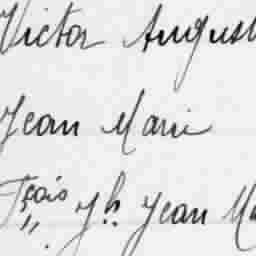 Victor August
Jean Marie
Fçois Jh. Jean Ma